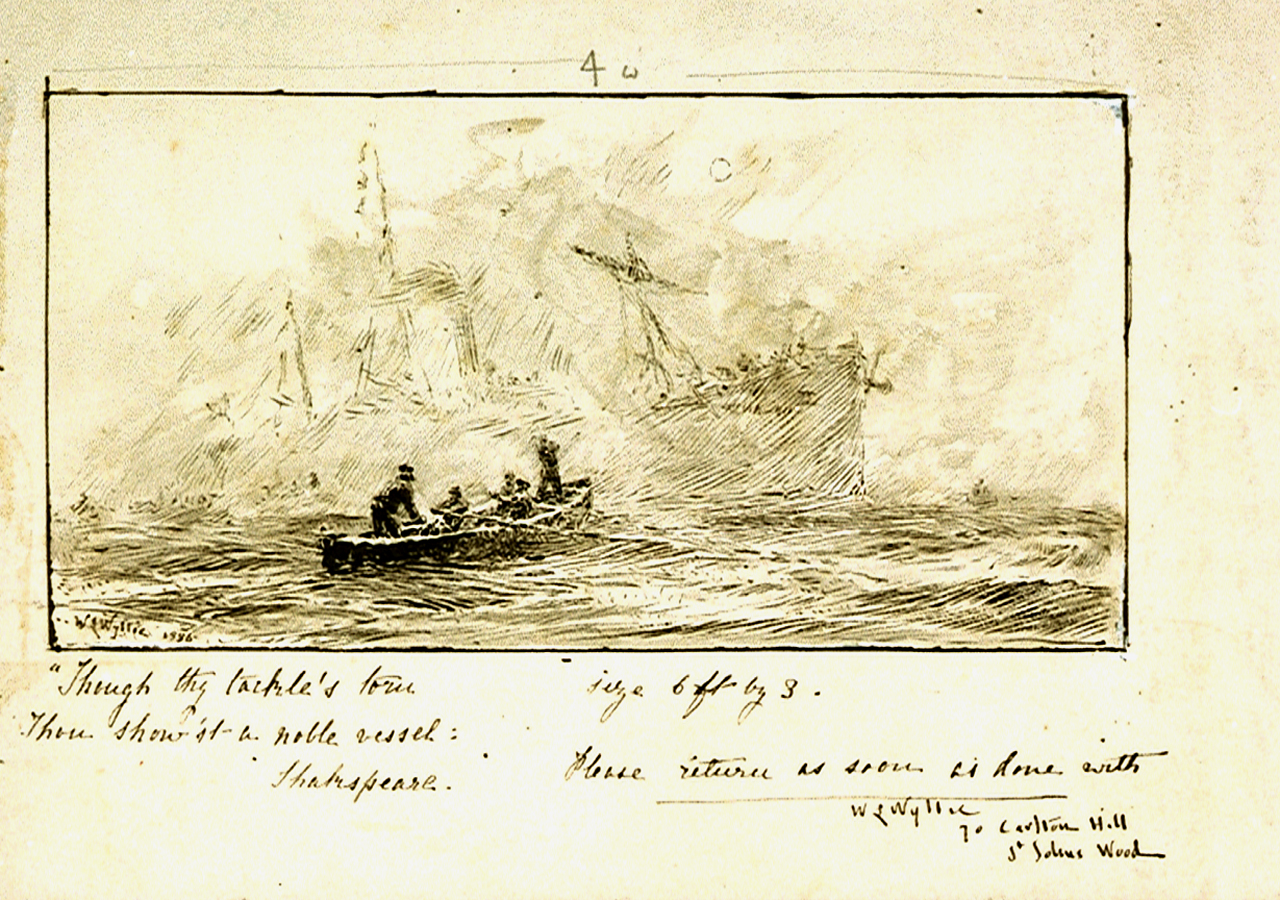 4
W L Wyllie 1886
"Though thy tackle's torn
Thou show'st a noble vessel:
Shakspeare.
size 6 ft by 3.
Please return as soon as done with
W L Wyllie
70 Carlton Hill
St Johns Wood